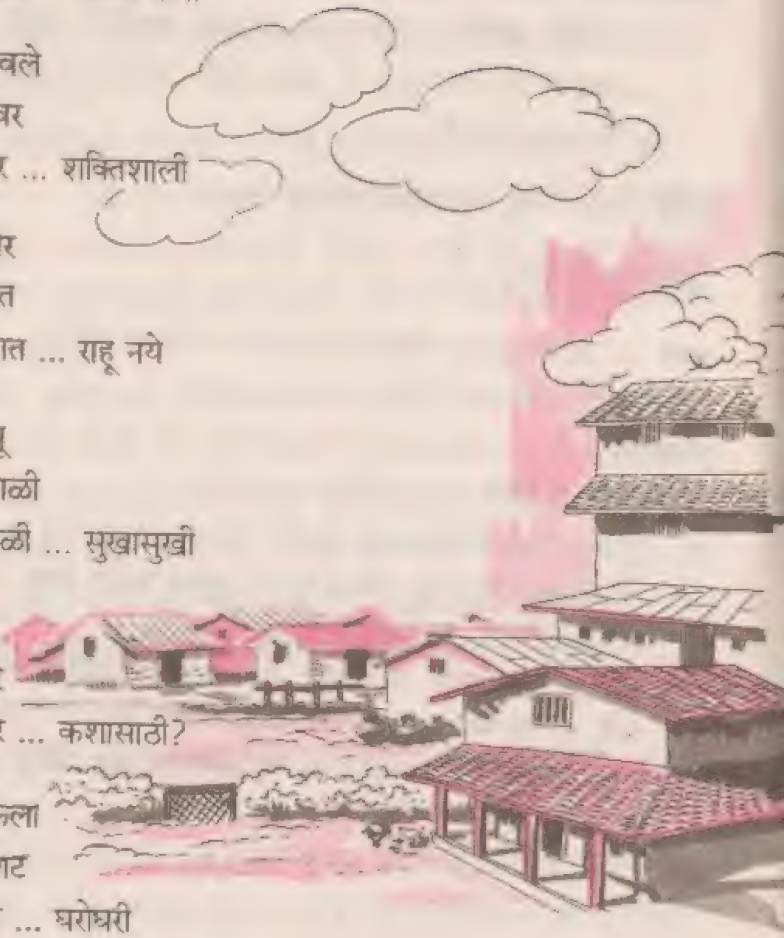 वले
वर
र ... शक्तिशाली
र
त
ात ... राहू नये
ळी
ळी ... सुखासुखी
र ... कशासाठी?
ला
गट
... घरोघरी